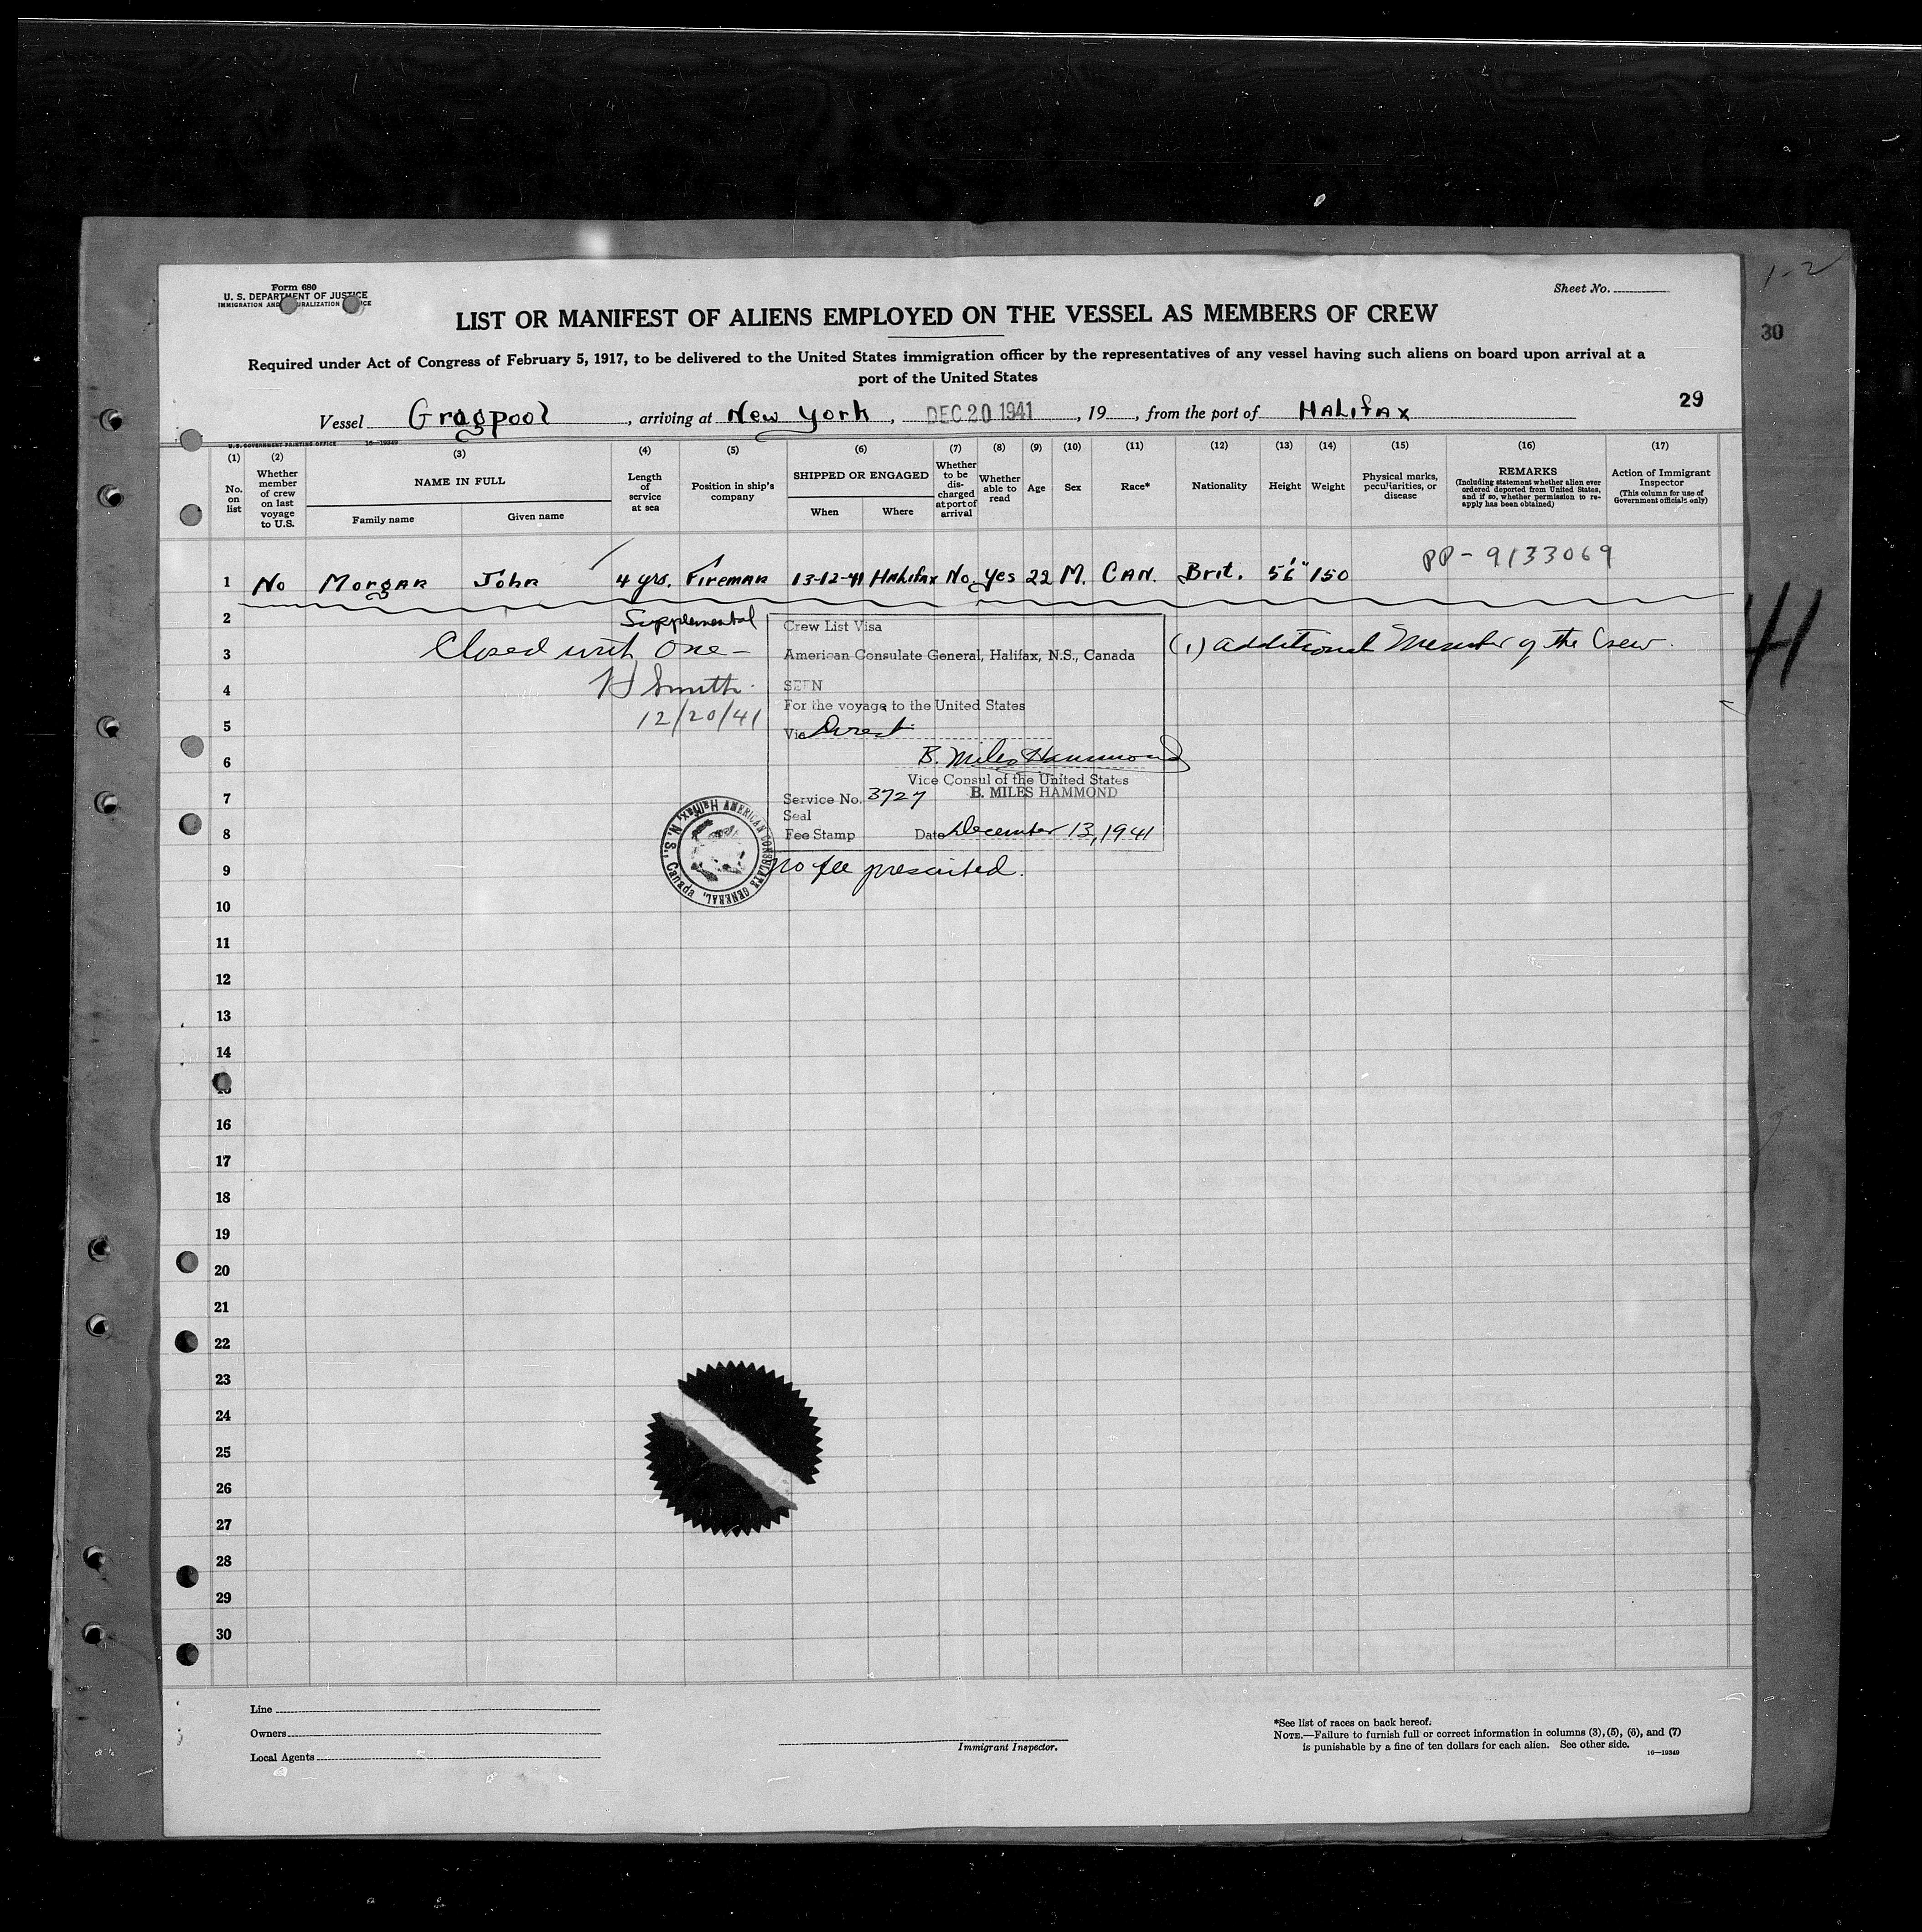 1-2
30
Form 680
U. S. DEPARTMENT OF JUSTICE
IMMIGRATION AND NATURALIZATION SERVICE
Sheet No.
LIST OR MANIFEST OF ALIENS EMPLOYED ON THE VESSEL AS MEMBERS OF CREW
Required under Act of Congress of February 5, 1917, to be delivered to the United States immigration officer by the representatives of any vessel having such aliens on board upon arrival at a
port of the United States
29
Vessel Gragpool, arriving at New York, DEC 20 1941, 19, from the port of Halifax
U.S. GOVERNMENT PRINTING OFFICE 16-19349
(1) (2) (3) (4) (5) (6) (7) (8) (9) (10) (11) (12) (13) (14) (15) (16) (17)
No. on list
Whether member of crew on last voyage to U.S.
NAME IN FULL
Family name
Given name
Length of service at sea
Position in ship's company
SHIPPED OR ENGAGED
When
Where
Whether to be discharged at port of arrival
Whether able to read
Age
Sex
Race*
Nationality
Height
Weight
Physical marks, peculiarities, or disease
REMARKS
(Including statement whether alien ever ordered deported from United States, and if so, whether permission to reapply has been obtained)
Action of Immigrant Inspector
(This column for use of Government officials only)
1 No Morgan John 4 yrs. Fireman 13-12-41 Halifax No. Yes 22 M. CAN. Brit. 5'6" 150 PP-9133069
2 Supplemental
3 Closed with One-
4 H Smith
5 12/20/41
6
7
8
9
10
11
12
13
14
15
16
17
18
19
20
21
22
23
24
25
26
27
28
29
30
Crew List Visa
American Consulate General, Halifax, N.S., Canada
SEEN
For the voyage to the United States
Via Direct
B. Miles Hammond
Vice Consul of the United States
Service No. 3727 B. MILES HAMMOND
Seal
Fee Stamp Date December 13, 1941
No fee prescribed.
(1) additional Member of the Crew.
AMERICAN CONSULATE GENERAL, Halifax, N.S., Canada
Line
Owners
Local Agents
Immigrant Inspector.
*See list of races on back hereof.
NOTE.—Failure to furnish full or correct information in columns (3), (5), (6), and (7)
is punishable by a fine of ten dollars for each alien. See other side.
16-19349